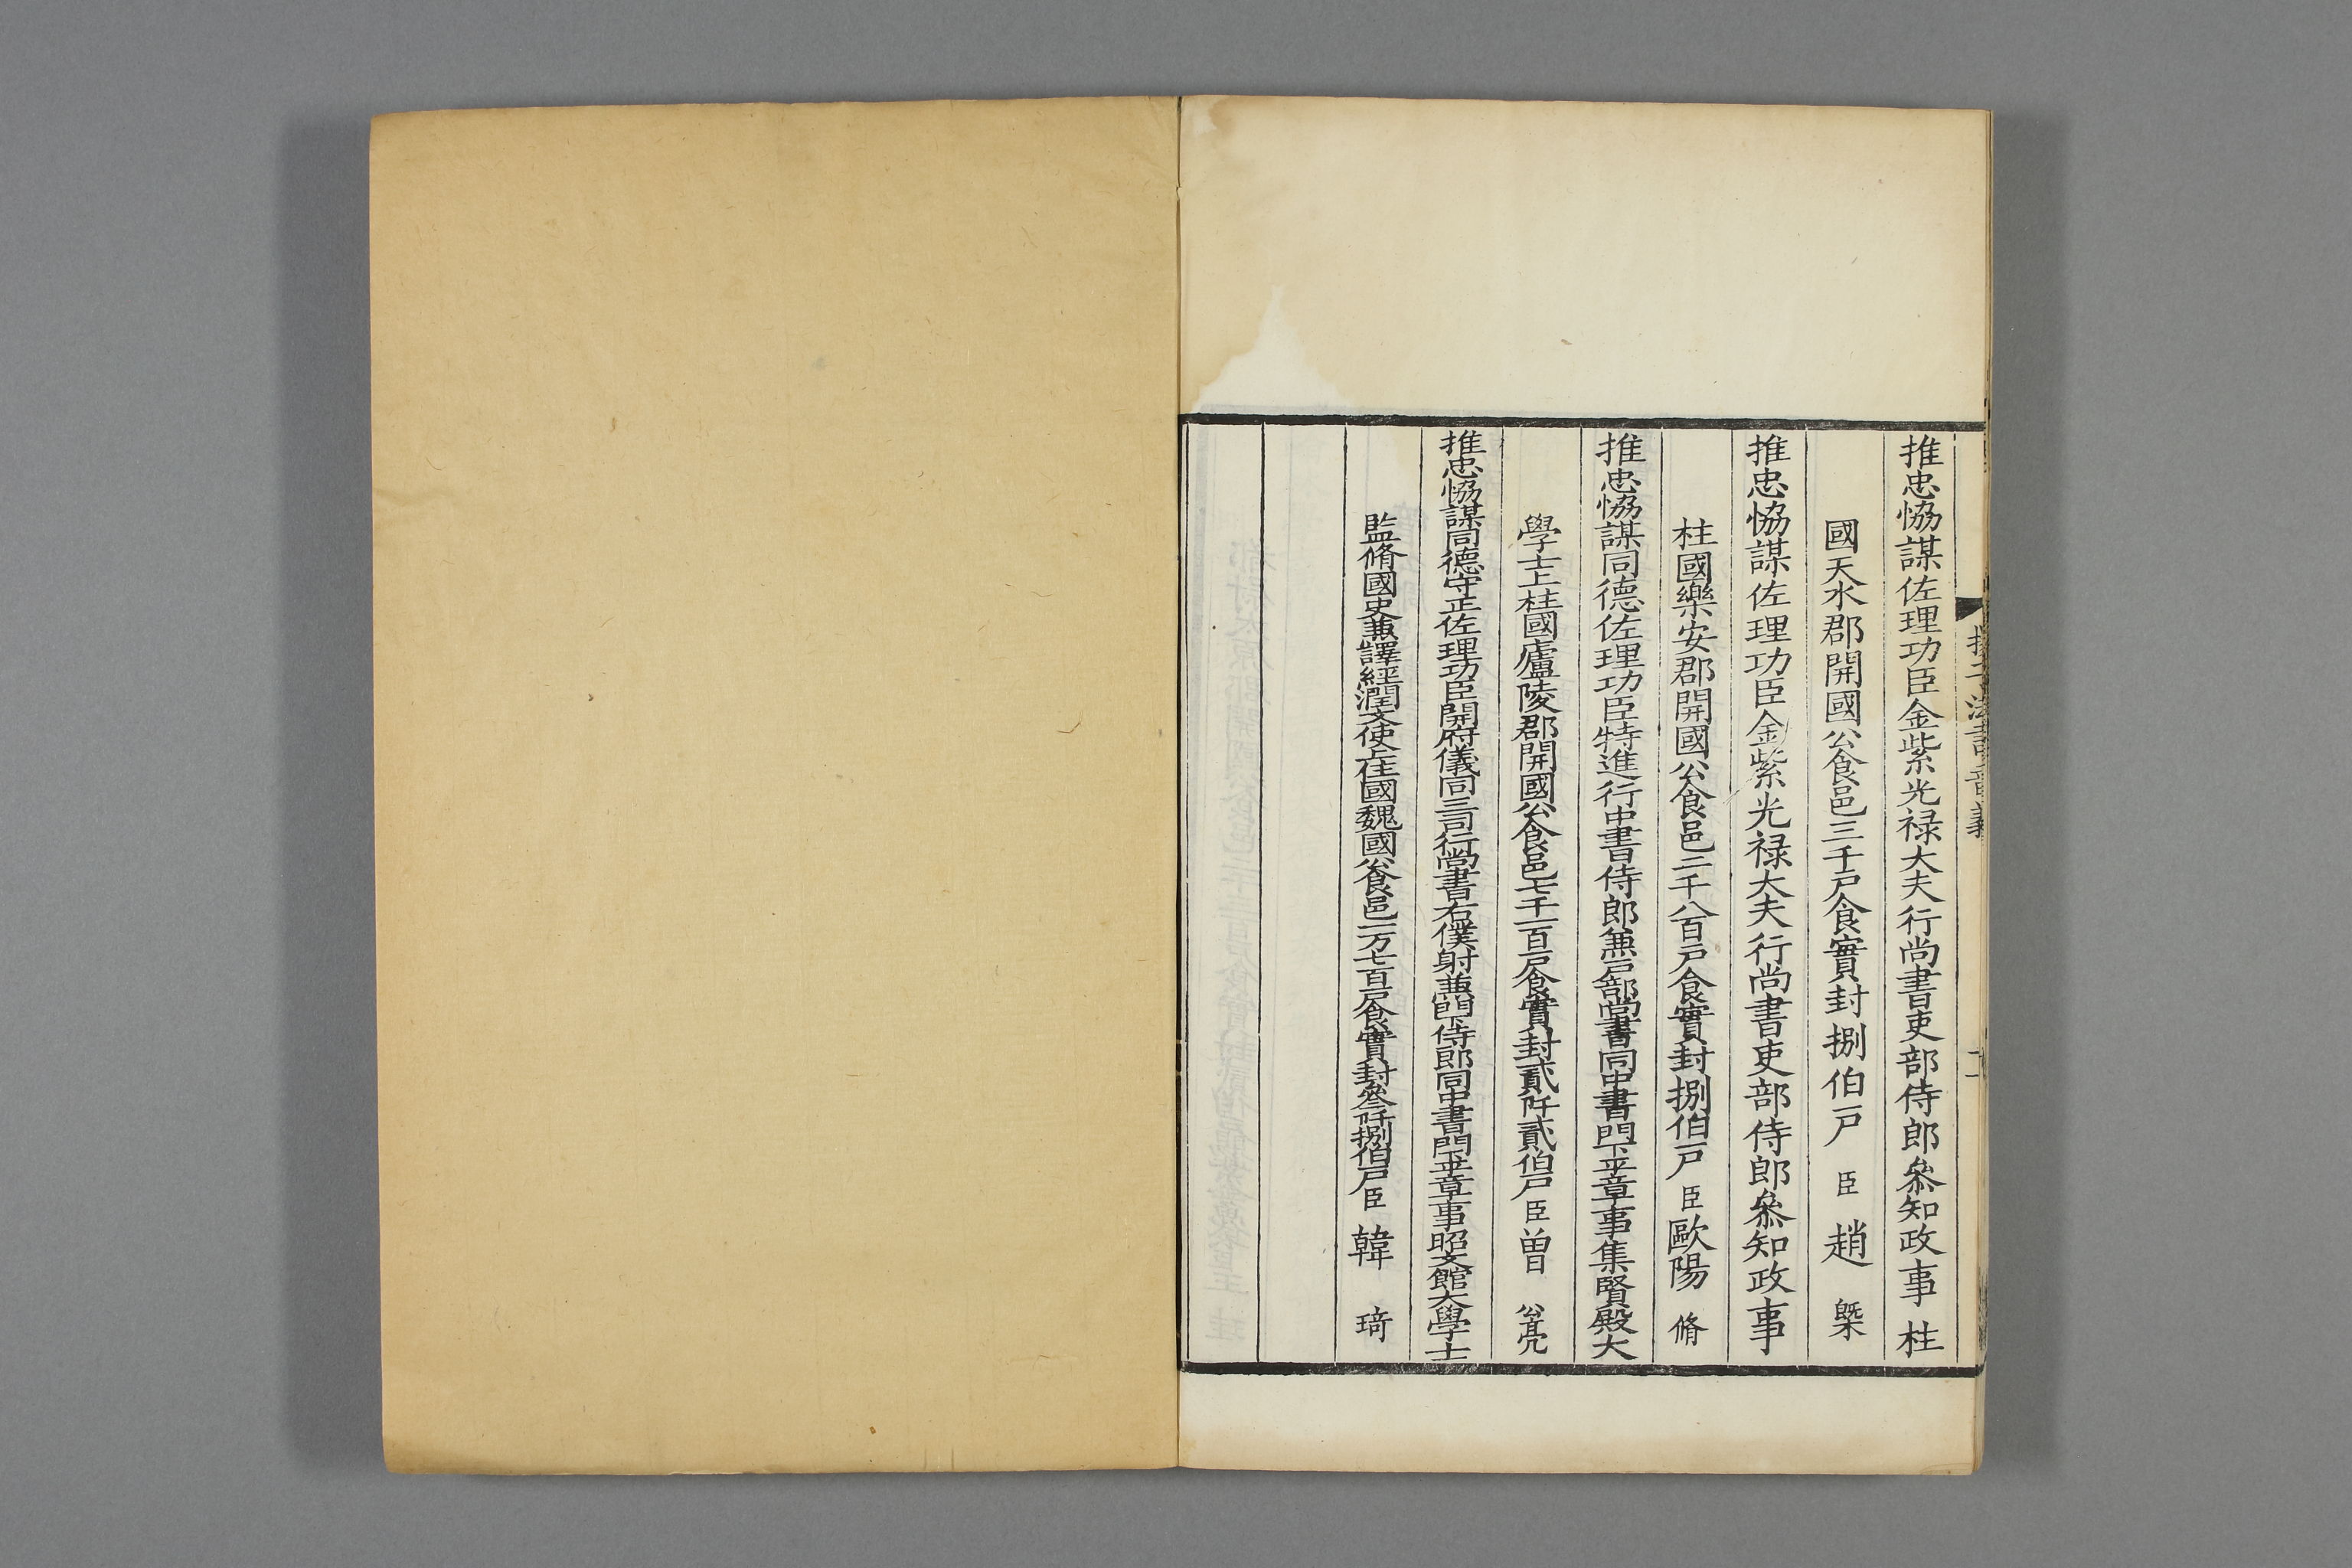 推忠恊謀佐理功臣金紫光禄大夫行尚書吏部侍郎叅知政事柱
國天水郡開國公食邑三千戸食實封捌伯戸 臣 趙 槩
推忠恊謀佐理功臣金紫光禄大夫行尚書吏部侍郎叅知政事
柱國樂安郡開國公食邑二千八百戸食實封捌伯戸 臣 歐陽 脩
推忠恊謀同德佐理功臣特進行中書侍郎兼戸部尚書同中書門下平章事集賢殿大
學士上柱國廬陵郡開國公食邑七千一百戸食實封貳阡貳伯戸 臣 曽 公亮
推忠恊謀同德守正佐理功臣開府儀同三司行尚書右僕射兼門下侍郎同中書門下平章事昭文館大學士
監脩國史兼譯經潤文使上柱國魏國公食邑一万七百戸食實封叅仟捌伯戸 臣 韓 琦